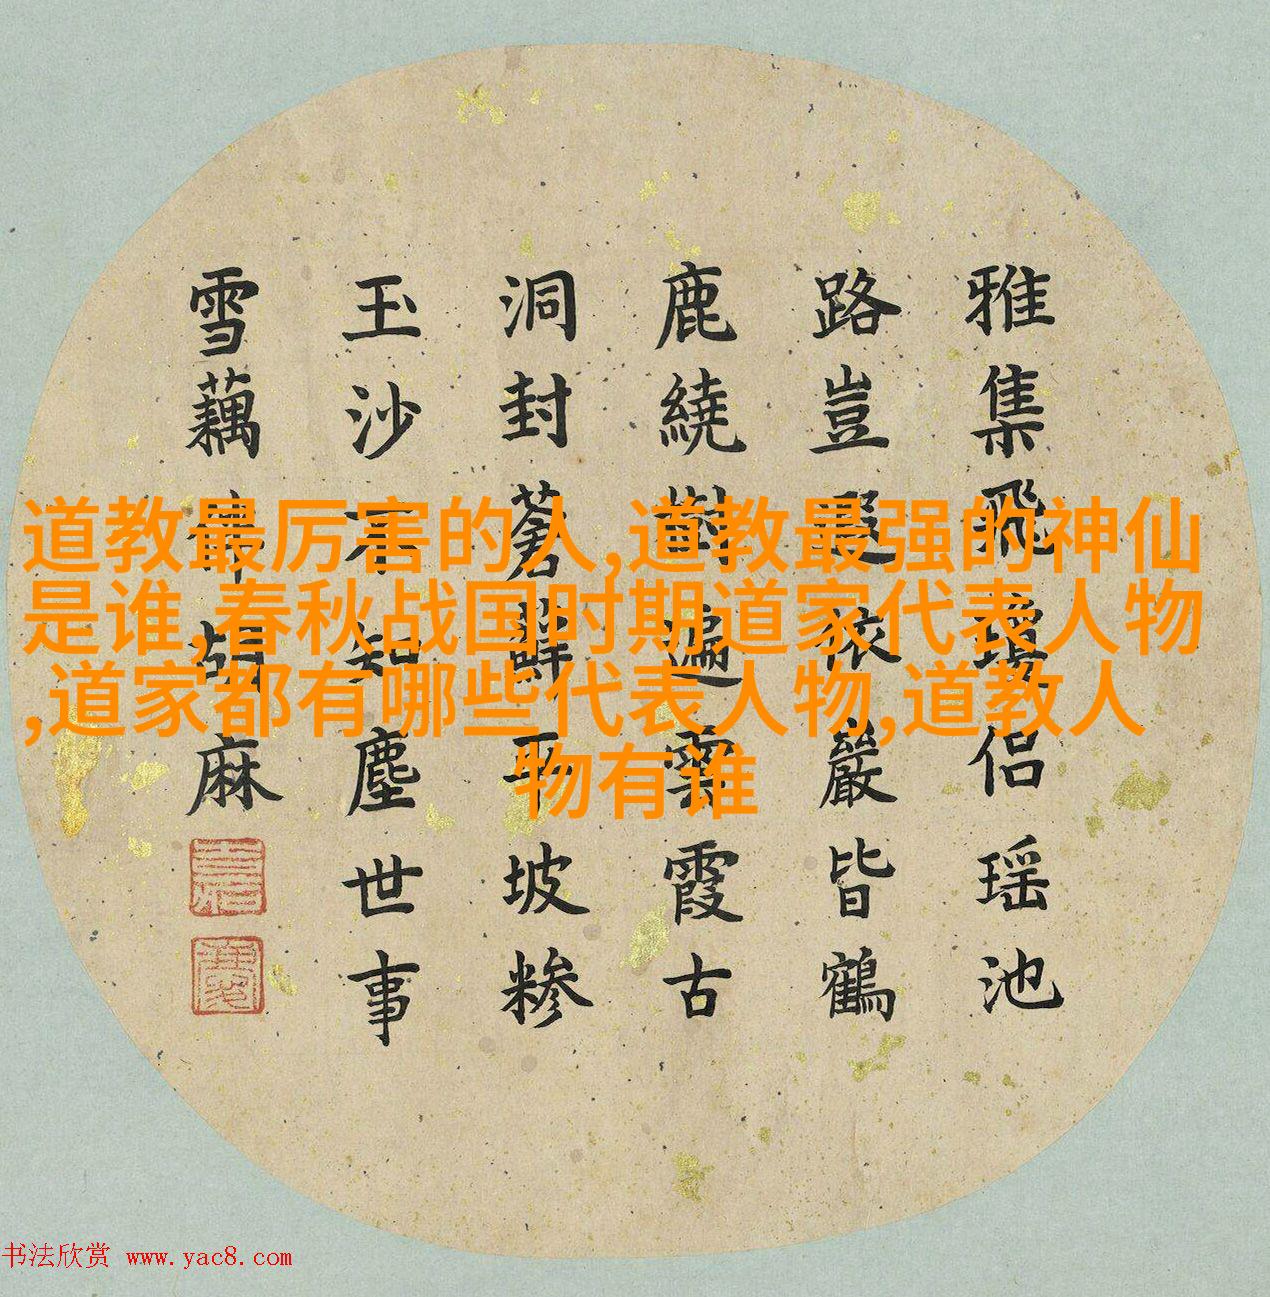 道教最厉害的人,道教最强的神仙
是谁,春秋战国时期道家代表人物
,道家都有哪些代表人物,道教人
物有谁
雅集飛瓊侶瑶池
路豈遐依巖皆鶴
鹿繞樹遍雲霞古
洞封蒼蘚平坡糝
玉沙不知塵世事
雪藕胡麻
书法欣赏 www.yac8.com